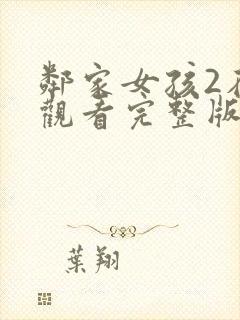 鄰家女孩2在
觀看完整版
葉翔